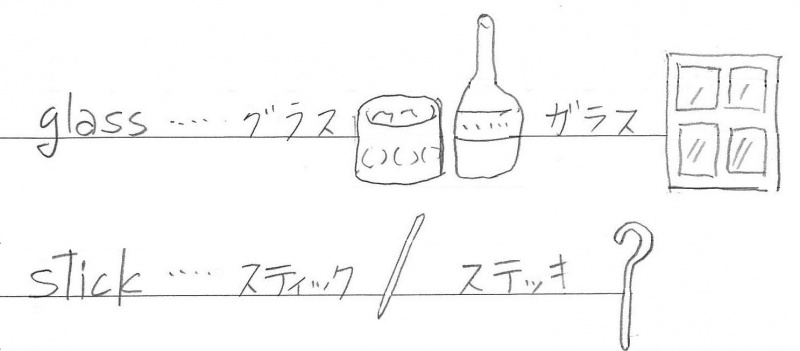 glass ····· グラス ガラス
stick ····· スティック ステッキ